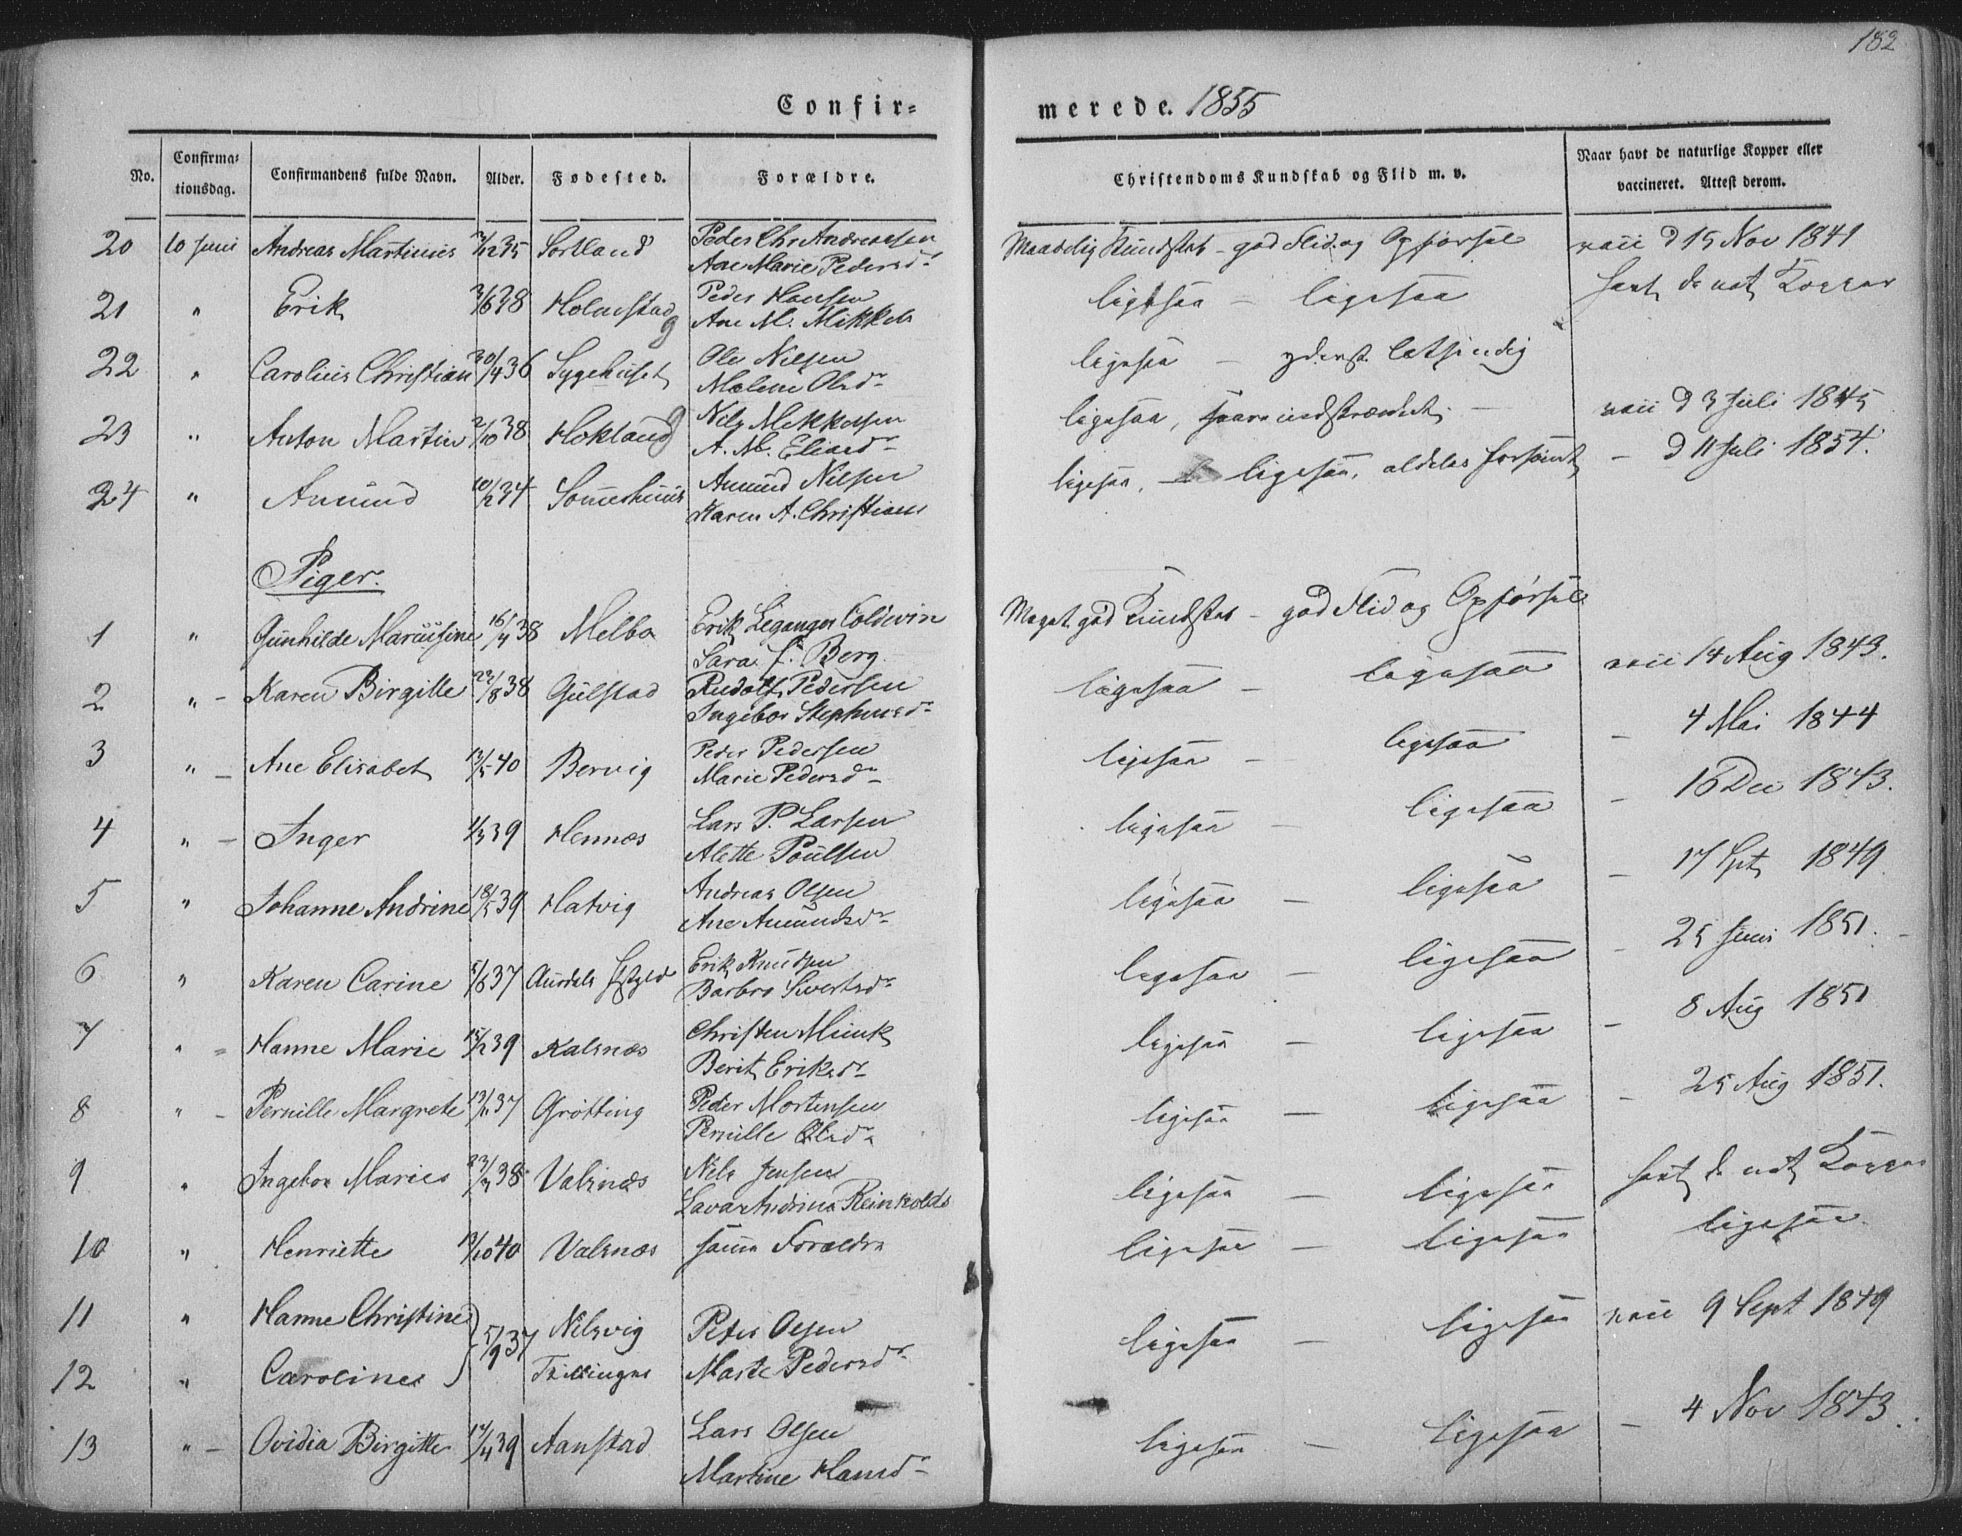 182
Confir-
merede. 1855
No.
Confirma-
tionsdag.
Confirmandens fulde Navn.
Alder.
Fødested.
Forældre.
Christendoms Kundskab og Flid m. v.
Naar havt de naturlige Kopper eller
vaccineret. Attest derom.
20 10 Juni Andreas Martinus 35 Sortland Peder Chr Andreassen
Ane Marie Pedersdr
Maadelig Kundskab - god Flid og Opførsel vacc d 15 Nov 1841
21 " Erik 3/6 38 Holmstad Peder Hansen
Ane M. Mikkels
ligesaa - ligesaa havt de nat Kopper
22 " Carolius Christian 30/4 36 Sygehuset Ole Nilsen
Malene Olsdr
ligesaa - yderst letsindig
23 " Anton Martin 2/10 38 Hokland Nils Mikkelsen
A. M. Eliasdr
ligesaa, svare indskrænket - vacc d 3 Juli 1845
24 " Amund 10/2 34 Sommerhuus Amund Nilsen
Karen A. Christians
ligesaa, - ligesaa, aldeles forsømt - d 11 Juli 1854.
Piger.
1 " Gunhilde Marusine 16/4 38 Melbo Erik Leganger Coldevin
Sara J. Berg
Meget god Kundskab - god Flid og Opførsel
2 " - Karen Birgitte 22/8 38 Gulstad Rudolf Pedersen
Ingebor Stephensdr
ligesaa - ligesaa vacc 14 Aug 1843.
3 " - Ane Elisabet 13/5 40 Bervig Peder Pedersen
Marie Pedersdr
ligesaa - ligesaa - 4 Mai 1844
4 " - Inger 1/3 39 Hennæs Lars P. Larsen
Alette Poulsen
ligesaa - ligesaa - 16 Dec 1843.
5 " Johanne Andrine 18/5 39 Hatvig Andreas Olsen
Ane Amundsdr
ligesaa - ligesaa - 17 Spt 1849
6 " Karen Carine 5/6 37 Aurdals Erik Knudsen
Barbro Sivertsdr
ligesaa - ligesaa - 25 Juni 1851.
7 " = Hanne Marie 15/12 39 Kalsnæs Christen Munk
Berit Eriksdr
ligesaa - ligesaa - 8 Aug 1851
8 " - Pernille Margrete 37 Grøtting Peder Mortensen
Pernille Olsdr
ligesaa - ligesaa - 25 Aug 1851.
9 " Ingebor Maries 38 Valsnæs Nils Jensen
Reinholds
ligesaa - ligesaa havt de nat Kopper
10 " Henriette 13/10 40 Valsnæs samme Forældre
ligesaa - ligesaa ligesaa.
11 " Hanne Christine 5/9 37 Nilsvig Peter Olsen
ligesaa - ligesaa vacc 9 Sept 1849
12 " Caroline Tvillinger Marte Pedersdr
13 " - Ovidia Birgitte 17/4 39 Aanstad Lars Olsen
Martine Hansdr
ligesaa - ligesaa - 4 Nov 1843.